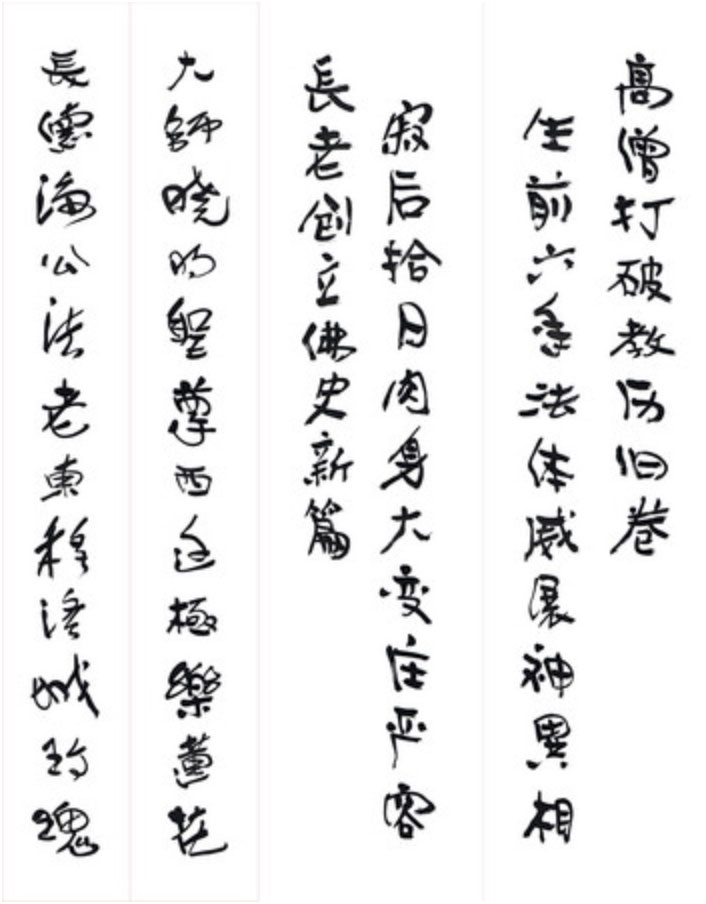 高僧打破教历旧卷
生前六年法体威展神異相
寂后拾日肉身大变庄严容
長老创立佛史新篇
大師晓明聖尊西極樂花
長德海公法老東城玫瑰